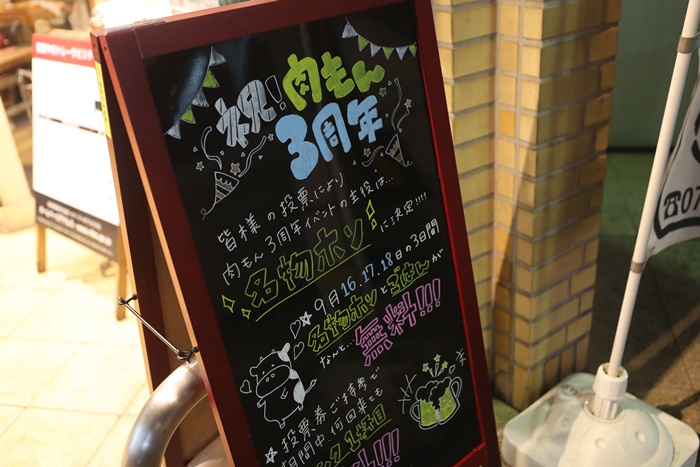 祝!肉もん
3周年
皆様の投票により
肉もん3周年イベントの主役は...
名物ホソ!に決定!!!!
9月16.17.18日の3日間
名物ホソとごはんが
なんと...無料!!!
投票券ご持参で
期間中、何回来ても
1杯目